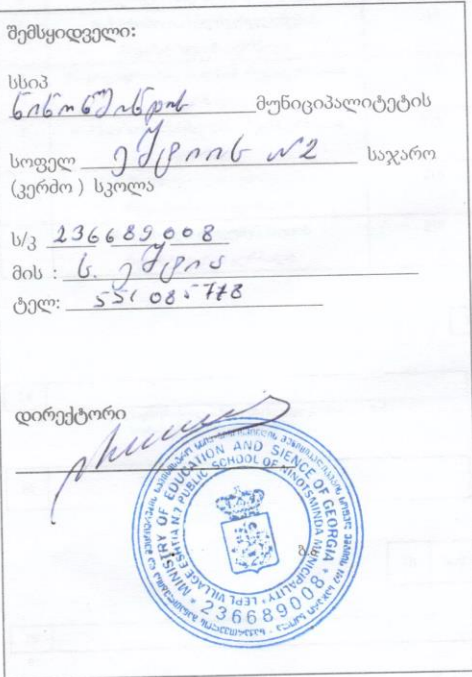 შემსყიდველი:
სსიპ
ნინოწმინდის მუნიციპალიტეტის
სოფელ ეშტიის №2 საჯარო
(კერძო ) სკოლა
ს/კ 236689008
მის : ს. ეშტია
ტელ: 551 085778
დირექტორი
ბ.ა
MINISTRY OF EDUCATION AND SIENCE OF GEORGIA *
LEPL VILLAGE ESHTIA N2 PUBLIC SCHOOL OF NINOTSMINDA MUNICIPALITY
* 236689008 *